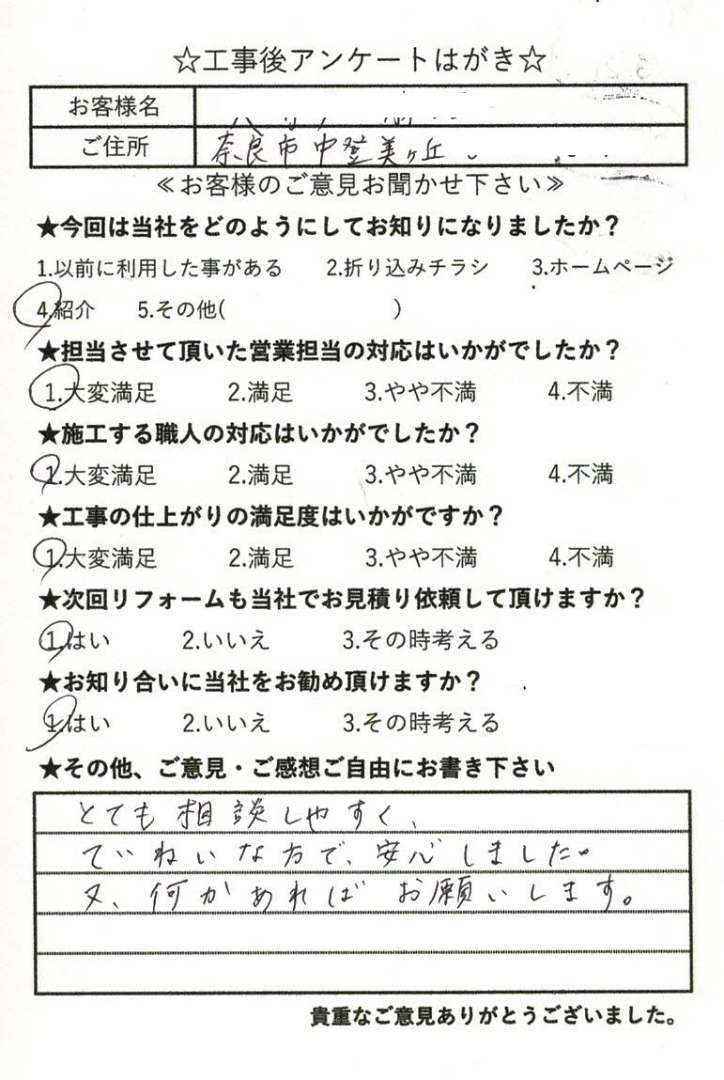 ☆工事後アンケートはがき☆
お客様名
ご住所 奈良市中登美ヶ丘
≪お客様のご意見お聞かせ下さい≫
★今回は当社をどのようにしてお知りになりましたか？
1.以前に利用した事がある 2.折り込みチラシ 3.ホームページ
4.紹介 5.その他( )
★担当させて頂いた営業担当の対応はいかがでしたか？
1.大変満足 2.満足 3.やや不満 4.不満
★施工する職人の対応はいかがでしたか？
1.大変満足 2.満足 3.やや不満 4.不満
★工事の仕上がりの満足度はいかがですか？
1.大変満足 2.満足 3.やや不満 4.不満
★次回リフォームも当社でお見積り依頼して頂けますか？
1.はい 2.いいえ 3.その時考える
★お知り合いに当社をお勧め頂けますか？
1.はい 2.いいえ 3.その時考える
★その他、ご意見・ご感想ご自由にお書き下さい
とても相談しやすく、
ていねいな方で、安心しました。
又、何かあればお願いします。
貴重なご意見ありがとうございました。